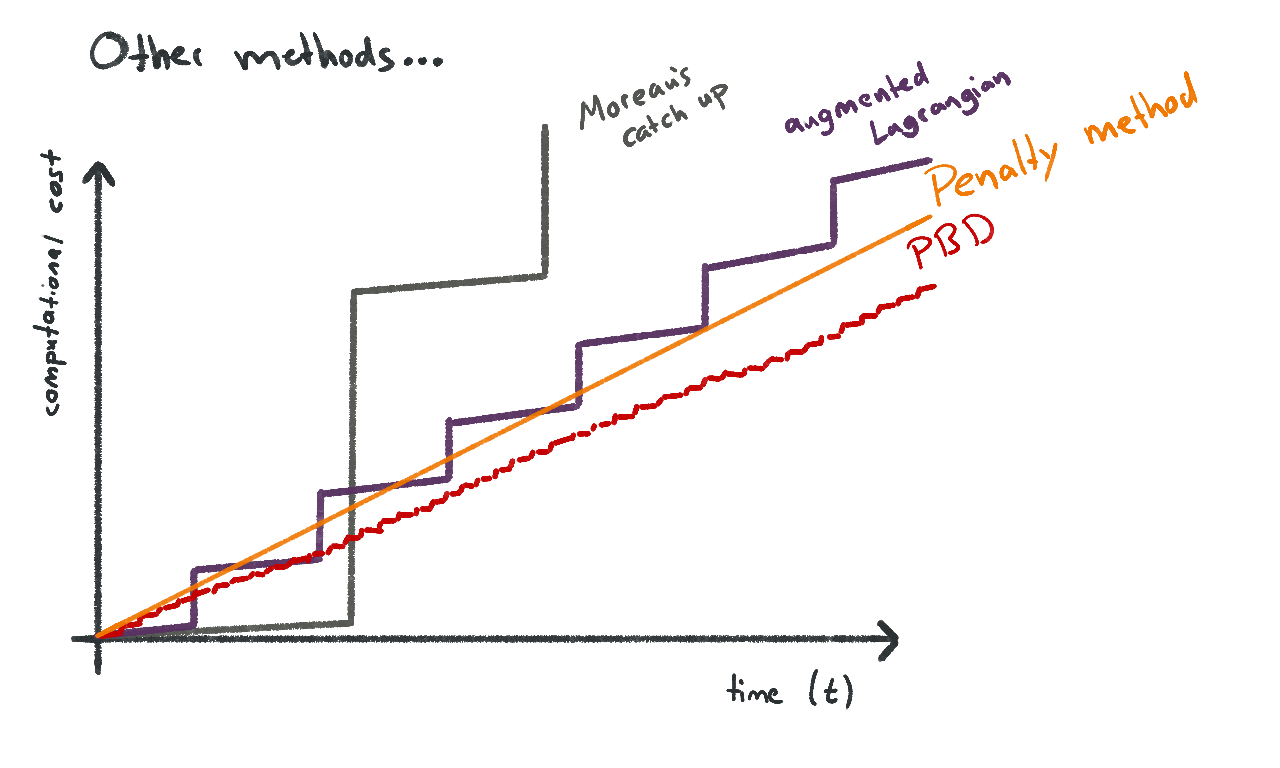 Other methods...
Moreau's
catch up
augmented
Lagrangian
Penalty method
PBD
computational cost
time (t)